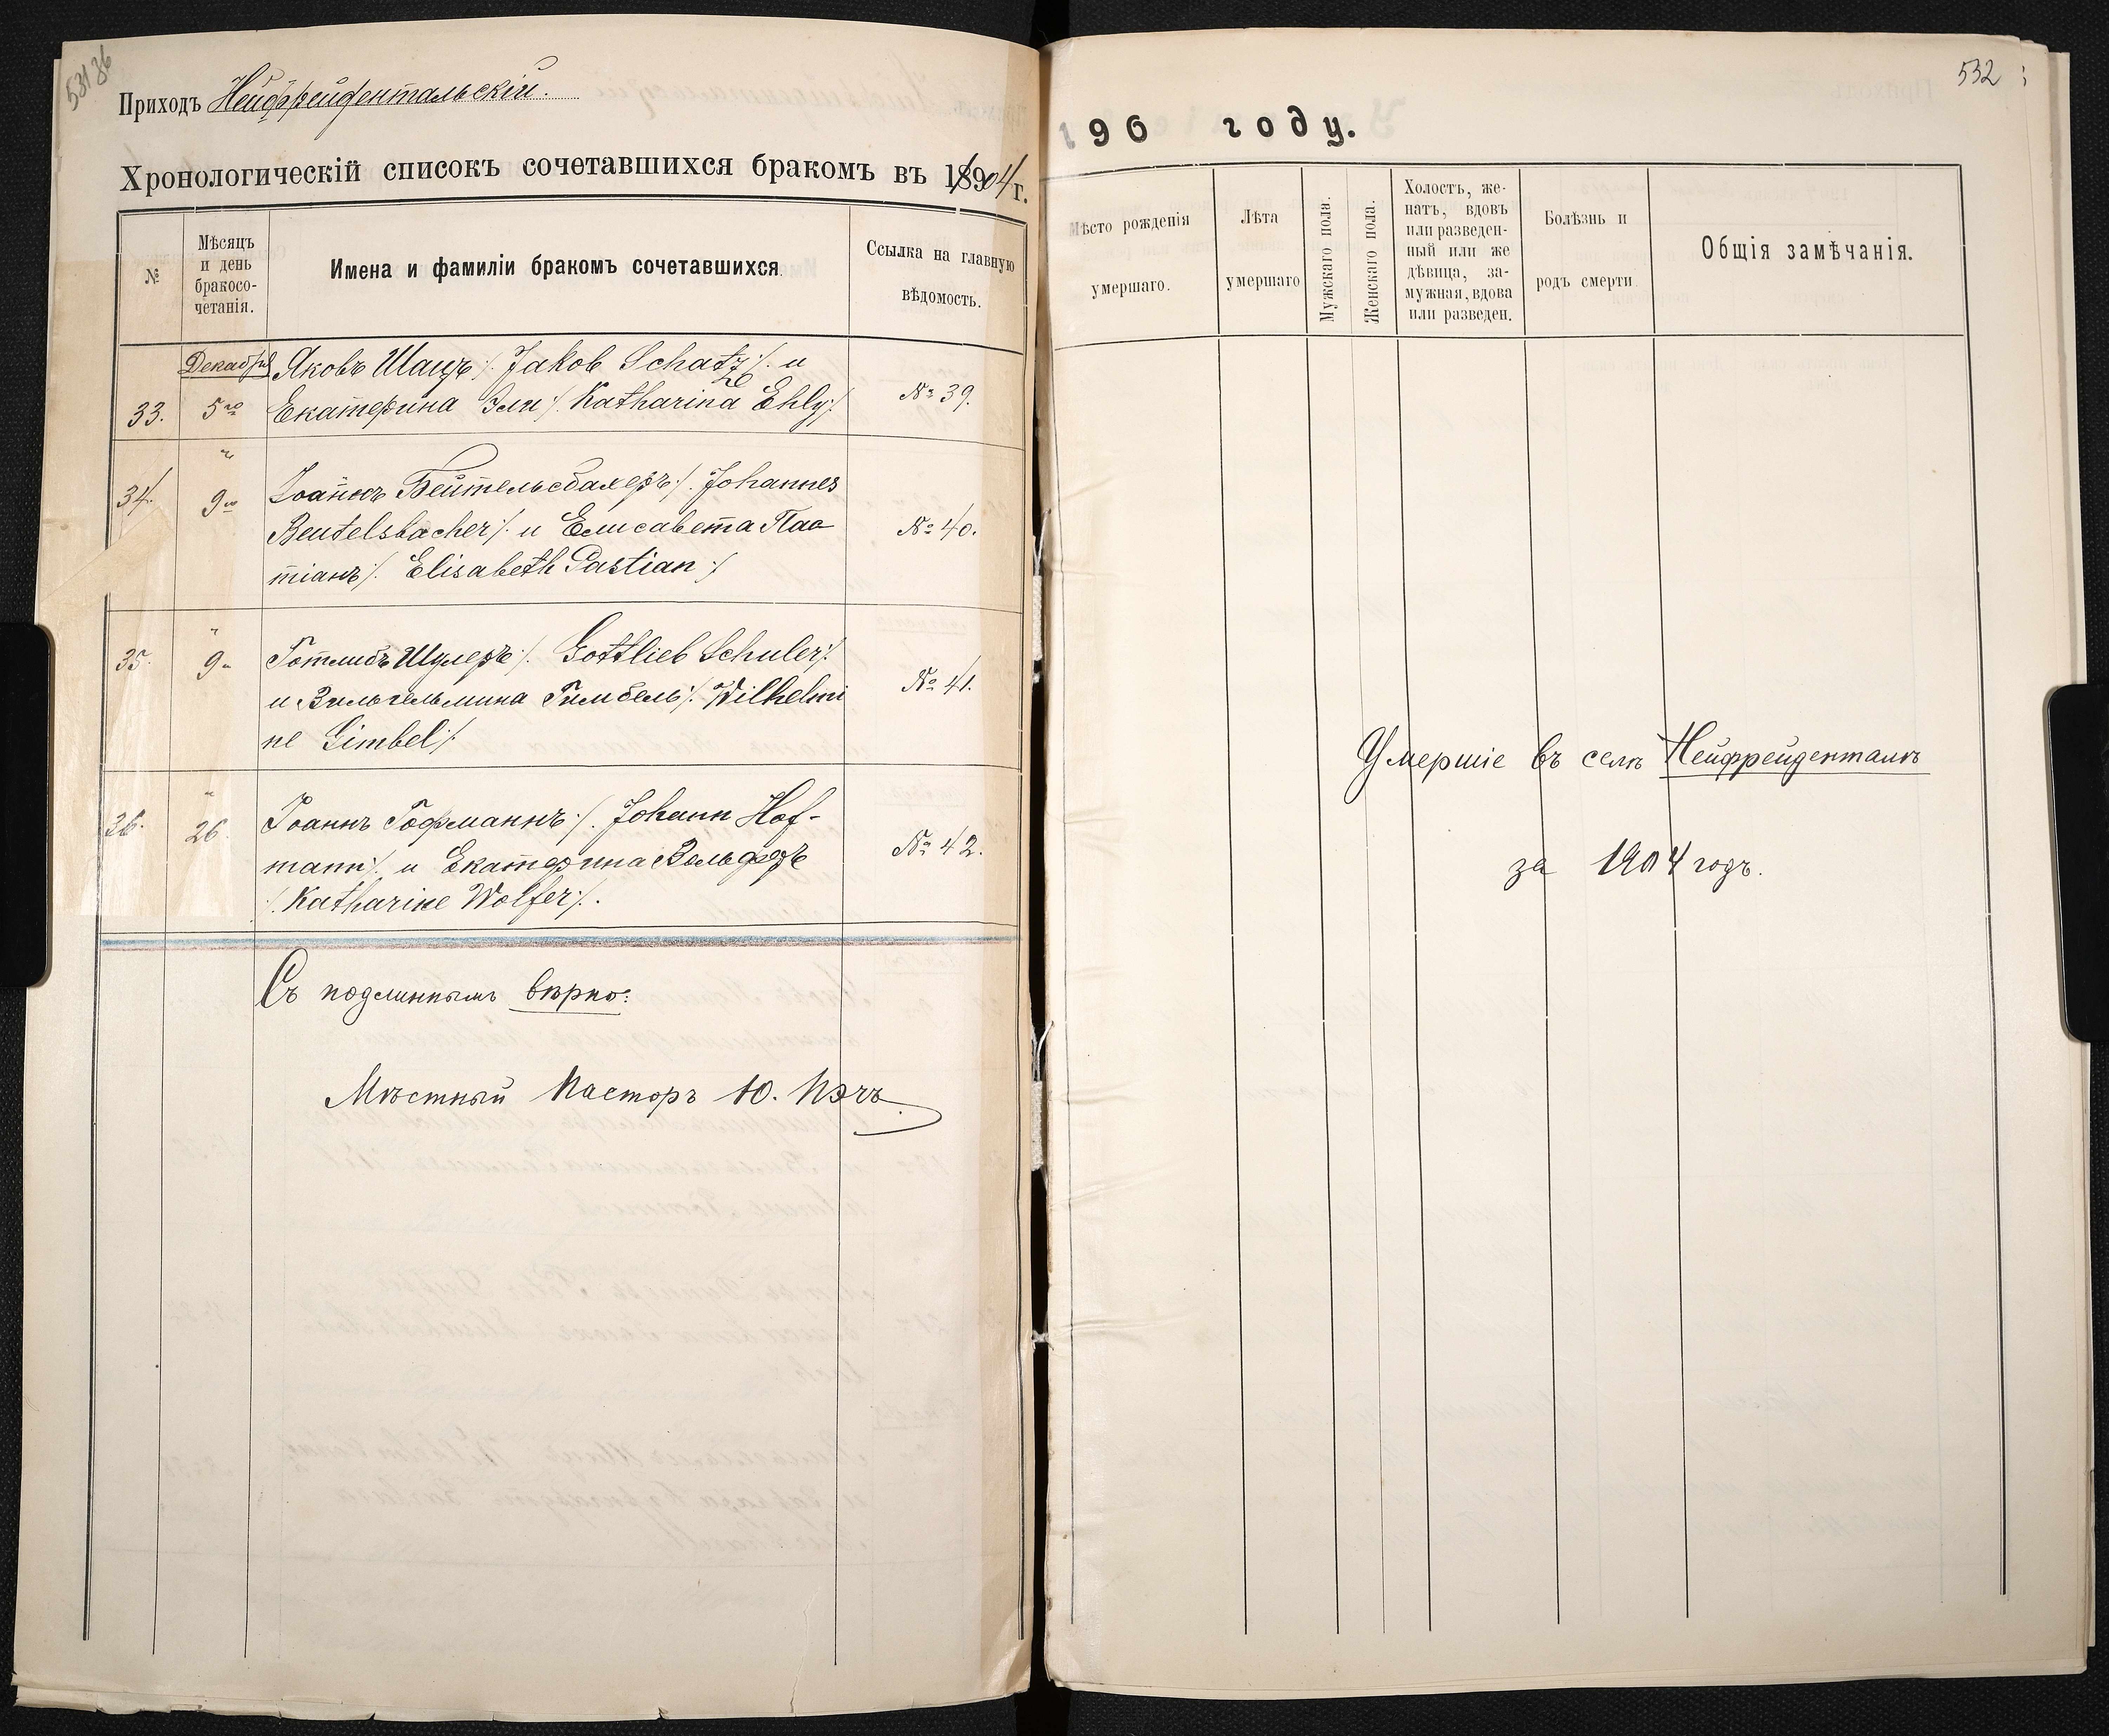 Приходъ Нейфрейдентальскій.
Хронологическій списокъ сочетавшихся бракомъ въ 1904 г.
№
Мѣсяцъ
и день
бракосо-
четанія.
Имена и фамиліи бракомъ сочетавшихся.
Ссылка на главную
вѣдомость.
Декабрь
33.
5го
Яковъ Шацъ /. Jakob Schatz ./. и
Екатерина Эли /. Katharina Ehly ./
№ 39.
"
34.
9го
Іоаннъ Бейтельсбахеръ /. Johannes
Beutelsbacher /. и Елисавета Пас
тіанъ /. Elisabeth Pastian ./
№ 40.
"
35.
9
Готлибъ Шулеръ /. Gottlieb Schuler ./
и Вильгельмина Гимбель /. Wilhelmi
ne Gimbel ./
№ 41.
"
36.
26.
Іоаннъ Гофманнъ /. Johann Hof-
mann /. и Екатерина Вольферъ
/. Katharine Wolfer ./.
№ 42.
Съ подлиннымъ вѣрно:
Мѣстный Пасторъ Ю. Пэчъ
532
190 году.
Мѣсто рожденія
умершаго.
Лѣта
умершаго
Мужскаго пола.
Женскаго пола.
Холостъ, же-
натъ, вдовъ
или разведен-
ный или же
дѣвица, за-
мужная, вдова
или разведен.
Болѣзнь и
родъ смерти
Общія замѣчанія.
Умершіе въ селѣ Нейфрейденталѣ
за 1904 годъ.